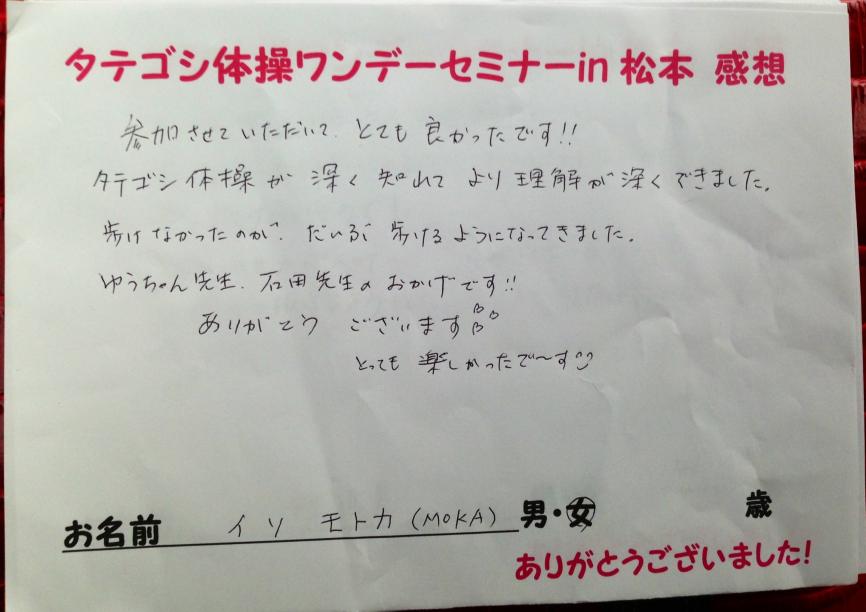 タテゴシ体操ワンデーセミナーin 松本 感想
参加させていただいて、とても良かったです!!
タテゴシ体操が深く知れてより理解が深くできました。
歩けなかったのが、だいぶ歩けるようになってきました。
ゆうちゃん先生、石田先生のおかげです!!
ありがとうございます
とっても楽しかったで〜す
お名前 イソ モトカ (MOKA) 男・女 歳
ありがとうございました!